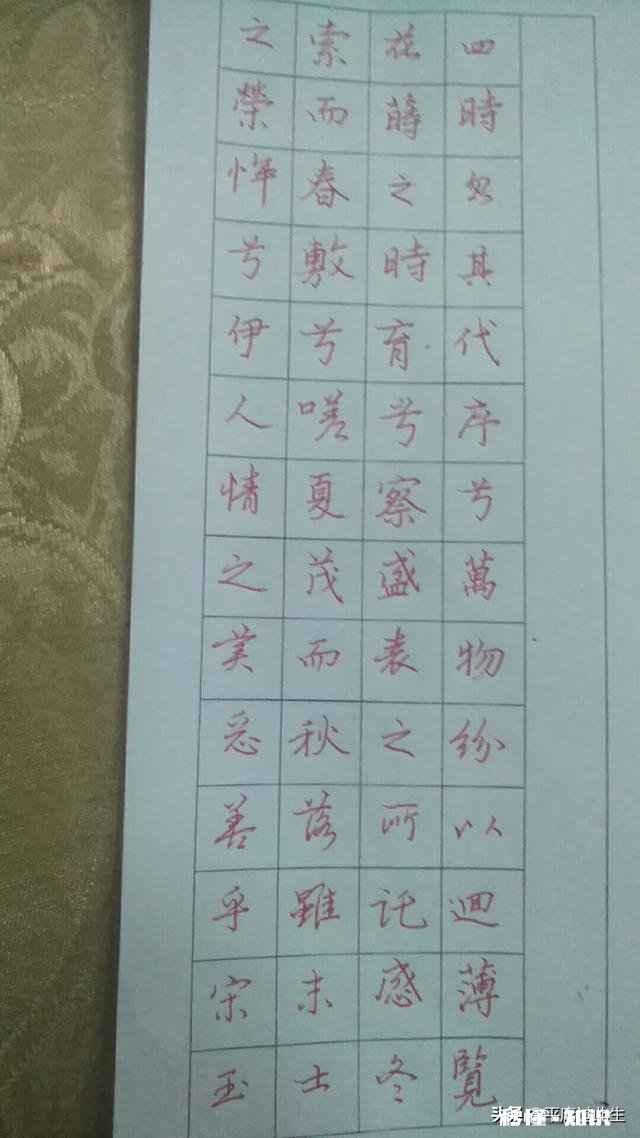 四時忽其代序兮萬物紛以迴薄覽
花蒔之時育兮察盛衰之所託感冬
索而春敷兮嗟夏茂而秋落雖末士
之榮悴兮伊人情之美惡善乎宋玉
秒懂·知识